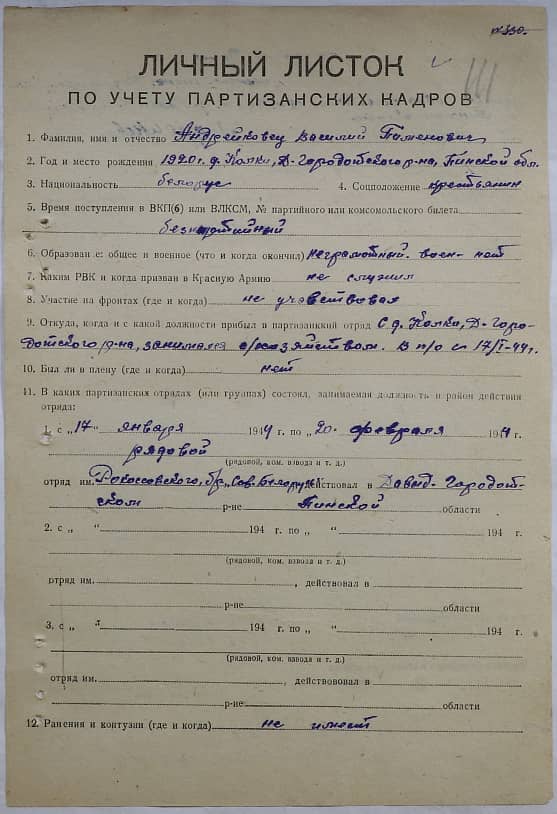 ЛИЧНЫЙ ЛИСТОК
ПО УЧЕТУ ПАРТИЗАНСКИХ КАДРОВ
1. Фамилия, имя и отчество Андрейковец Василий Пименович
2. Год и место рождения 1920 г. д. Колки, Д-Городотского р-на, Пинской обл.
3. Национальность белорус 4. Соцположение крестьянин
5. Время поступления в ВКП(б) или ВЛКСМ, № партийного или комсомольского билета
безпартийный
6. Образование: общее и военное (что и когда окончил) неграмотный. воен- нет
7. Каким РВК и когда призван в Красную Армию не служил
8. Участие на фронтах (где и когда) не учавствовал
9. Откуда, когда и с какой должности прибыл в партизанкий отряд С д. Колки, Д-Горо-
дотского р-на, занимался с/хозяйством. В п/о с 17/I-44г.
10. Был ли в плену (где и когда) нет
11. В каких партизанских отрядах (или группах) состоял, занимаемая должность и район действия
отряда:
1. с „17" января 1944 г. по „20" февраля 1944 г.
рядовой
(рядовой, ком. взвода и т. д.)
отряд им. Рокоссовского, бр. „Сов. Белорус." действовал в Давид-Городот-
ском р-не Пинской области
2. с „ " 194 г. по „ " 194 г.
(рядовой, ком. взвода и т. д.)
отряд им. , действовал в
р-не области
3. с „ " 194 г. по „ " 194 г.
(рядовой, ком. взвода и т. д.)
отряд им. , действововал в
р-не области
12. Ранения и контузии (где и когда) не имеет